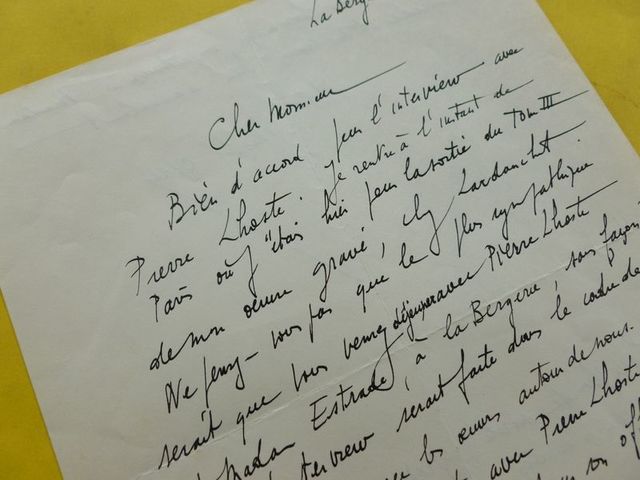 La Berg
Cher Monsieur
Bien d'accord pour l'interview avec
Pierre Lhoste. Je rentre à l'instant de
Paris où j'étais hier pour la sortie du Tom III
de mon œuvre gravé, chez Sardanchet
Ne pensez-vous pas que le plus sympathique
serait que vous veniez déjeuner avec Pierre Lhoste
Madam Estrade, à la Bergerie, sans façon
interview serait faite dans le cadre de
les œuvres autour de nous.
avec Pierre Lhoste
son off